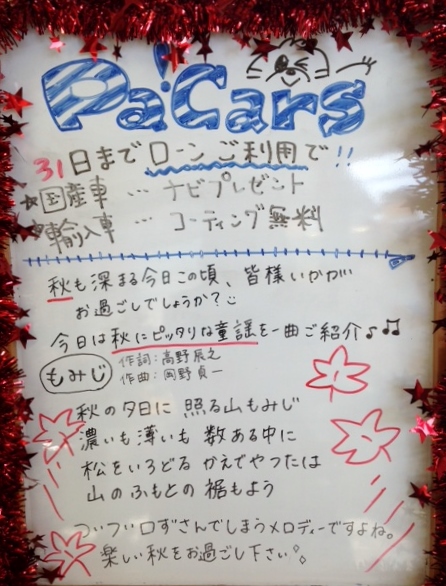 Pa'Cars
31日までローンご利用で!!
☆国産車 … ナビプレゼント
☆輸入車 … コーティング無料
秋も深まる今日この頃、皆様いかが
お過ごしでしょうか?
今日は秋にピッタリな童謡を一曲ご紹介♪♫
もみじ
作詞:高野辰之
作曲:岡野貞一
秋の夕日に 照る山もみじ
濃いも薄いも 数ある中に
松をいろどる かえでやつたは
山のふもとの 裾もよう
ついつい口ずさんでしまうメロディーですよね。
楽しい秋をお過ごし下さい